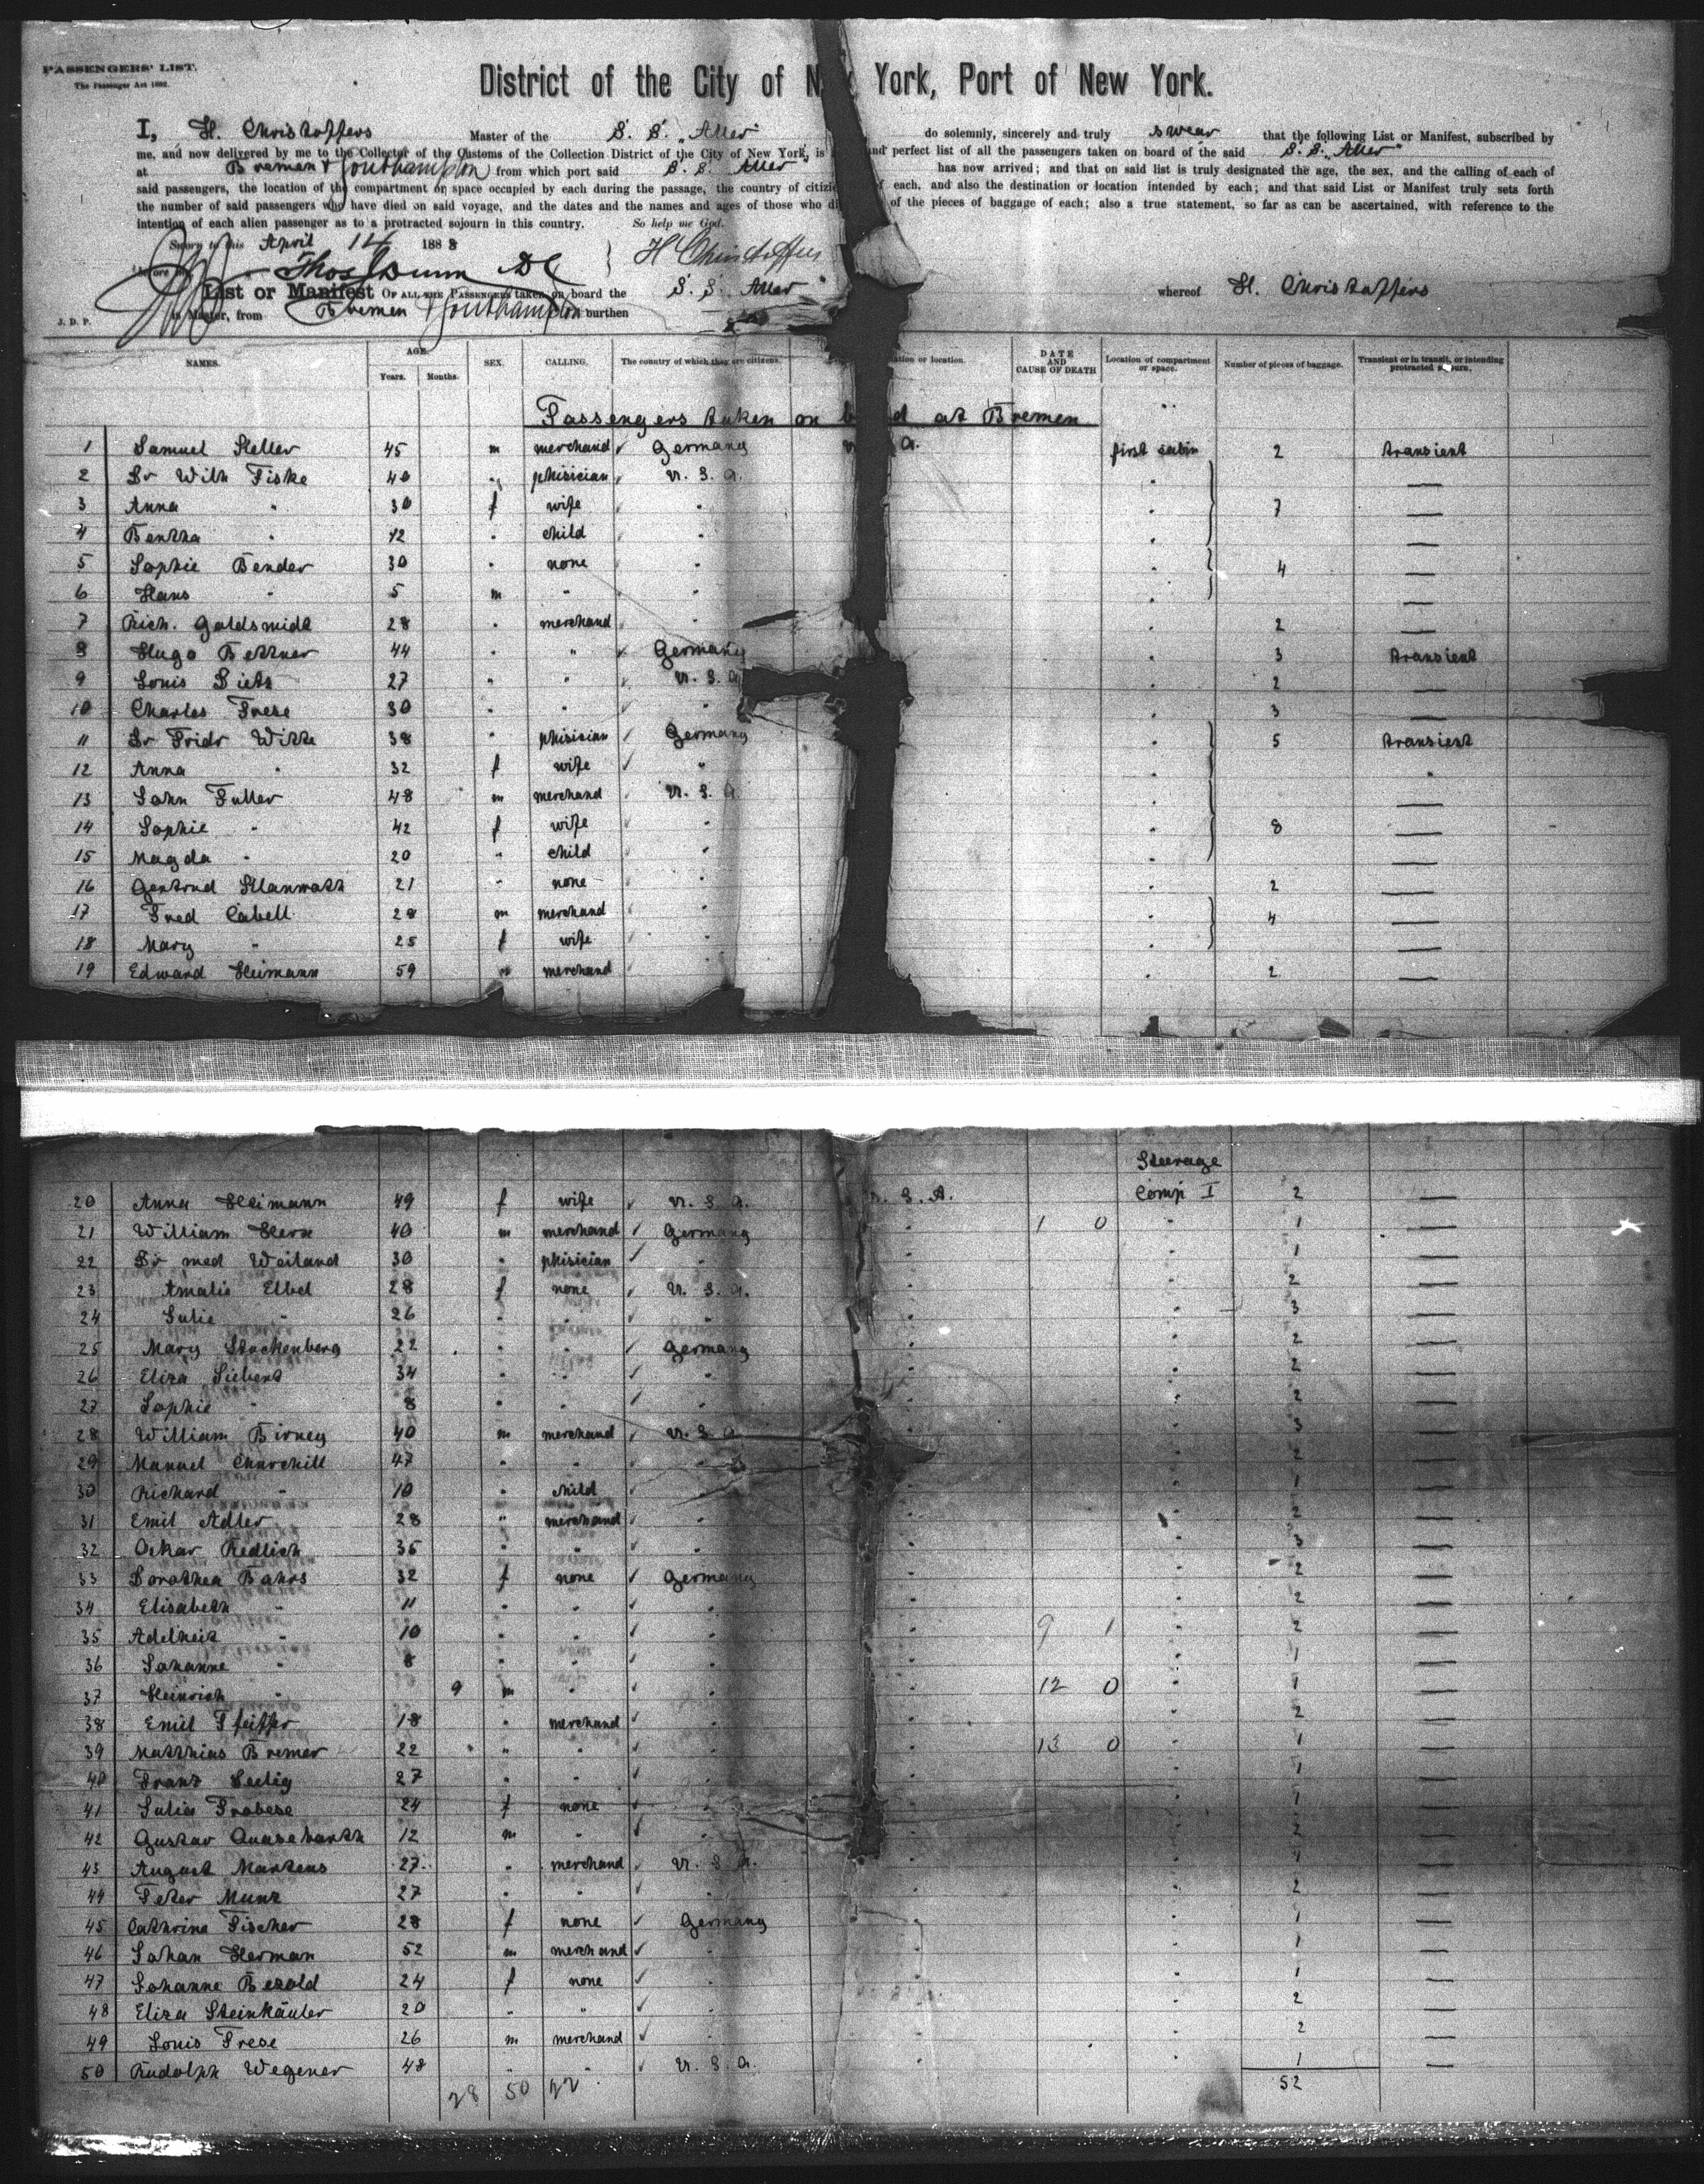 PASSENGERS' LIST.
The Passenger Act 1882.
District of the City of N York, Port of New York.
I, H. Christoffers Master of the S. S. "Aller" do solemnly, sincerely and truly swear that the following List or Manifest, subscribed by
me, and now delivered by me to the Collector of the Customs of the Collection District of the City of New York, is and perfect list of all the passengers taken on board of the said S. S. "Aller"
at Bremen & Southampton from which port said S. S. Aller has now arrived; and that on said list is truly designated the age, the sex, and the calling of each of
said passengers, the location of the compartment or space occupied by each during the passage, the country of citize of each, and also the destination or location intended by each; and that said List or Manifest truly sets forth
the number of said passengers who have died on said voyage, and the dates and the names and ages of those who di of the pieces of baggage of each; also a true statement, so far as can be ascertained, with reference to the
intention of each alien passenger as to a protracted sojourn in this country. So help me God.
Sworn to this April 14 1888 H Christoffers
List or Manifest OF ALL THE PASSENGERS taken on board the S. S. Aller whereof H. Christoffers
J. D. P. is Master, from Bremen & Southampton burthen
NAMES. AGE. Years. Months. SEX. CALLING. The country of which they are citizens. ation or location. DATE AND CAUSE OF DEATH Location of compartment or space. Number of pieces of baggage. Transient or in transit, or intending protracted sojourn.
Passengers taken on b d at Bremen
1 Samuel Heller 45 m merchand Germany a. first cabin 2 transient
2 Dr Wilh Fiske 40 " phisician U. S. a. "
3 Anna " 30 f wife " " 7
4 Bertha " 12 " child " "
5 Sophie Bender 30 " none " " 4
6 Hans " 5 m " " "
7 Rich. Goldsmidt 28 " merchand " " 2
8 Hugo Bettner 44 " " Germany " 3 transient
9 Louis Dietz 27 " " U. S. a " 2
10 Charles Frese 30 " " " " 3
11 Dr Fridr Witte 38 " phisician Germany " 5 transient
12 Anna " 32 f wife " " "
13 John Fuller 48 m merchand U. S. a. "
14 Sophie " 42 f wife " " 8
15 Magda " 20 " child " "
16 Gertrud Klanwath 21 " none " " 2
17 Fred Cabell 28 m merchand " " 4
18 Mary " 25 f wife " "
19 Edward Heimann 59 m merchand " " 2
Steerage
20 Anna Heimann 49 f wife U. S. a. S. A. Comp I 2
21 William Herx 40 m merchand Germany " 1 0 " 1
22 Dr med Weiland 30 " phisician " " " 1
23 Amalie Elbel 28 f none U. S. a. " " 2
24 Julie " 26 " " " " " 3
25 Mary Stockenberg 22 " " Germany " " 2
26 Eliza Siebert 34 " " " " " 2
27 Sophie " 8 " " " " " 2
28 William Birney 40 m merchand U. S. a " " 3
29 Manuel Churchill 47 " " " " " 2
30 Richard " 10 " child " " " 1
31 Emil Adler 28 " merchand " " " 2
32 Oskar Redlich 36 " " " " " 3
33 Dorothea Bahrs 32 f none Germany " " 2
34 Elisabeth " 11 " " " " " 2
35 Adelheit " 10 " " " " 9 1 " 2
36 Johanne " 8 " " " " " 1
37 Heinrich " 9 m " " " 12 0 " 1
38 Emil Pfeiffer 18 " merchand " " " 2
39 Matthias Bremer 22 " " " " 13 0 " 1
40 Franz Seelig 27 " " " " " 1
41 Julia Frobese 24 f none " " " 1
42 Gustav Quasebarth 12 m " " " " 2
43 August Martens 27 " merchand U. S. a. " "
44 Peter Munz 27 " " " " " 2
45 Cathrine Fischer 28 f none Germany " 1
46 Johan Herman 52 m merchand " " 1
47 Johanne Bezold 24 f none " " 1
48 Eliza Steinhäuler 20 " " " " 2
49 Louis Frese 26 m merchand " " 2
50 Rudolph Wegener 48 " " U. S. a. " 1
28 50 22 52